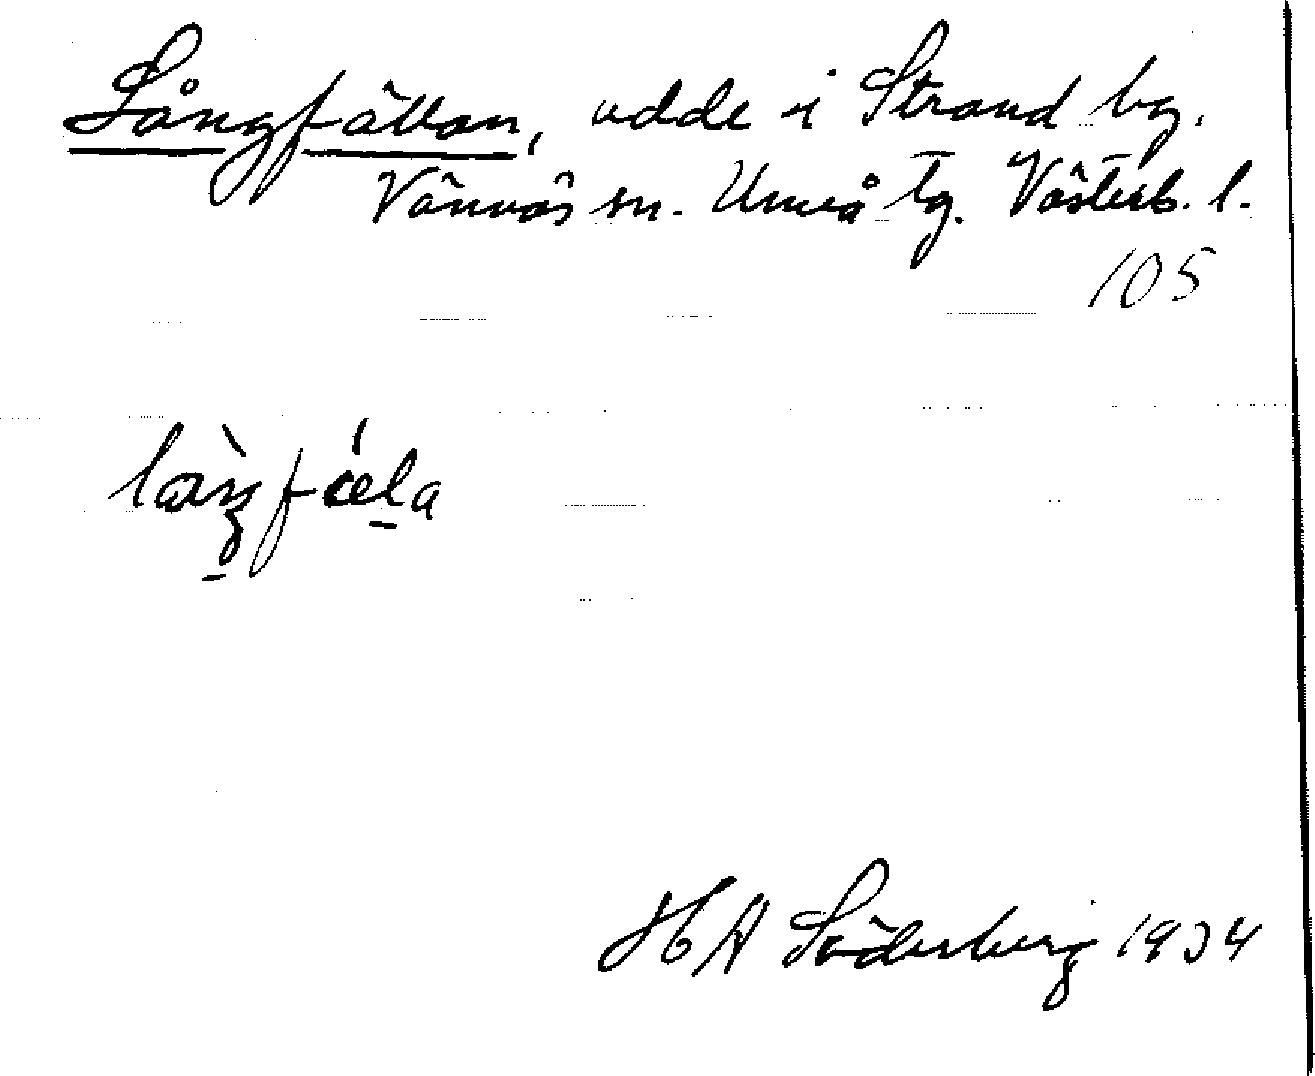 Långfällan, udde i Strand by.
Vännäs sn. Umeå tg. Västerb. l.
105
H A Söderberg 1934